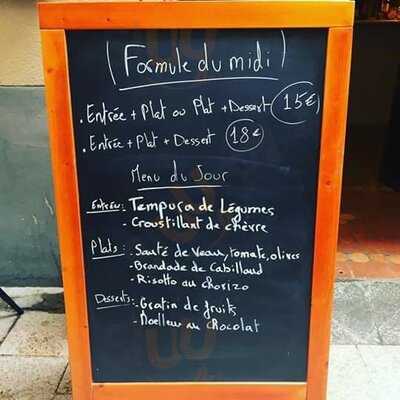 (Formule du midi)
. Entrée + Plat ou Plat + Dessert 15€
. Entrée + Plat + Dessert 18€
Menu du Jour
Entrées: - Tempura de Légumes
- Croustillant de chèvre
Plats: - Sauté de Veau, tomate, olives
- Brandade de Cabillaud
- Risotto au chorizo
Desserts: - Gratin de fruits
- Moelleux au chocolat